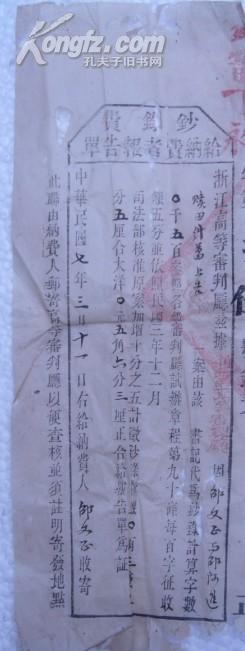 Kongfz.com
孔夫子旧书网
鈔錄費
給納費者報告單
浙江高等審判廳茲據 因邵文正与邵阿進
贖田涉葛上告 一案由該 書記代爲鈔錄計算字數
〇千五百 案部各級審判廳試辦章程第九十條每百字征收
銀五分並依照民國三年十二月
司法部核准原案加增十分之五計徵鈔錄費
分五厘合大洋〇元五角六分三厘正合給報告單爲証
中華民國七年三月十一日右給納費人邵文正收寄
此聯由納費人郵寄高等審判廳以便查核並須註明寄發地點